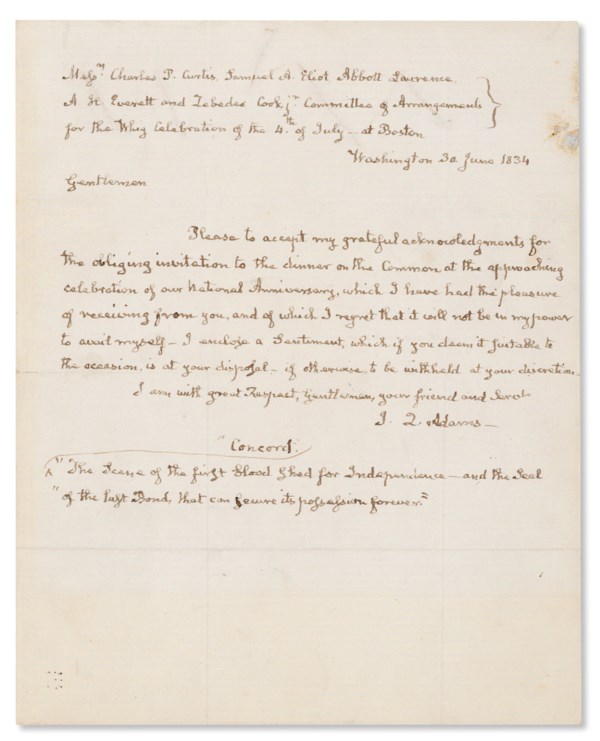 Messrs Charles P. Curtis, Samuel A. Eliot Abbott Lawrence
A. H. Everett and Zebedee Cook jr. Committee of Arrangements
for the Whig Celebration of the 4th. of July — at Boston
Washington 30 June 1834
Gentlemen
Please to accept my grateful acknowledgments for
the obliging invitation to the dinner on the Common at the approaching
celebration of our National Anniversary, which I have had the pleasure
of receiving from you, and of which I regret that it will not be in my power
to avail myself — I enclose a Sentiment, which if you deem it suitable to
the occasion, is at your disposal — if otherwise to be withheld at your discretion —
I am with great Respect, Gentlemen, your friend and Servt.
J. Q. Adams —
"Concord.
"The Scene of the first blood shed for Independence — and the Seal
"of the last Bond, that can secure its possession forever."